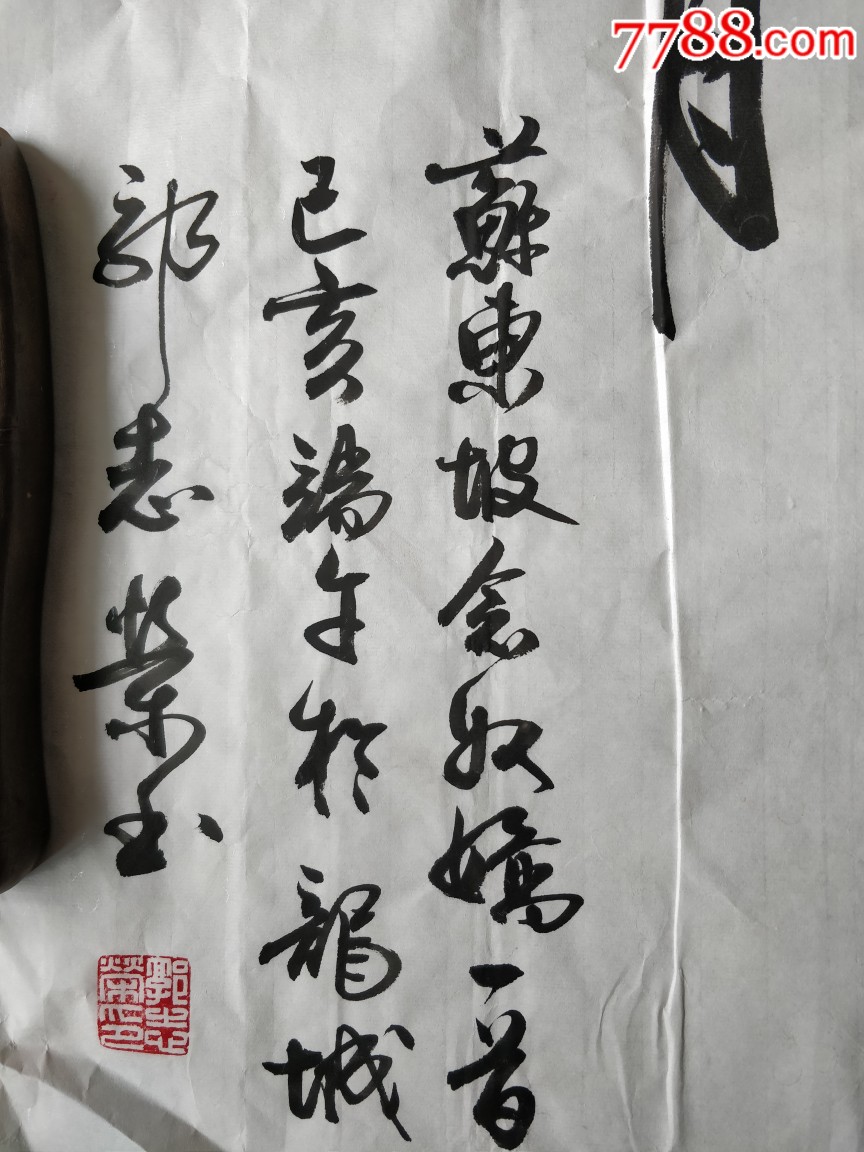 7788.com
月
蘇東坡念奴嬌一首
己亥端午於龍城
郭志榮書
郭志榮印